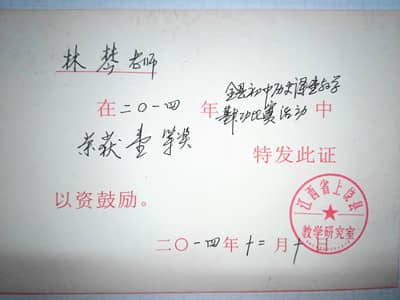 林梦老师
在二〇一四年全县初中历史课堂教学
基本功比赛活动中
荣获壹等奖 特发此证
以资鼓励。
江西省上饶县
教学研究室
二〇一四年十二月十日